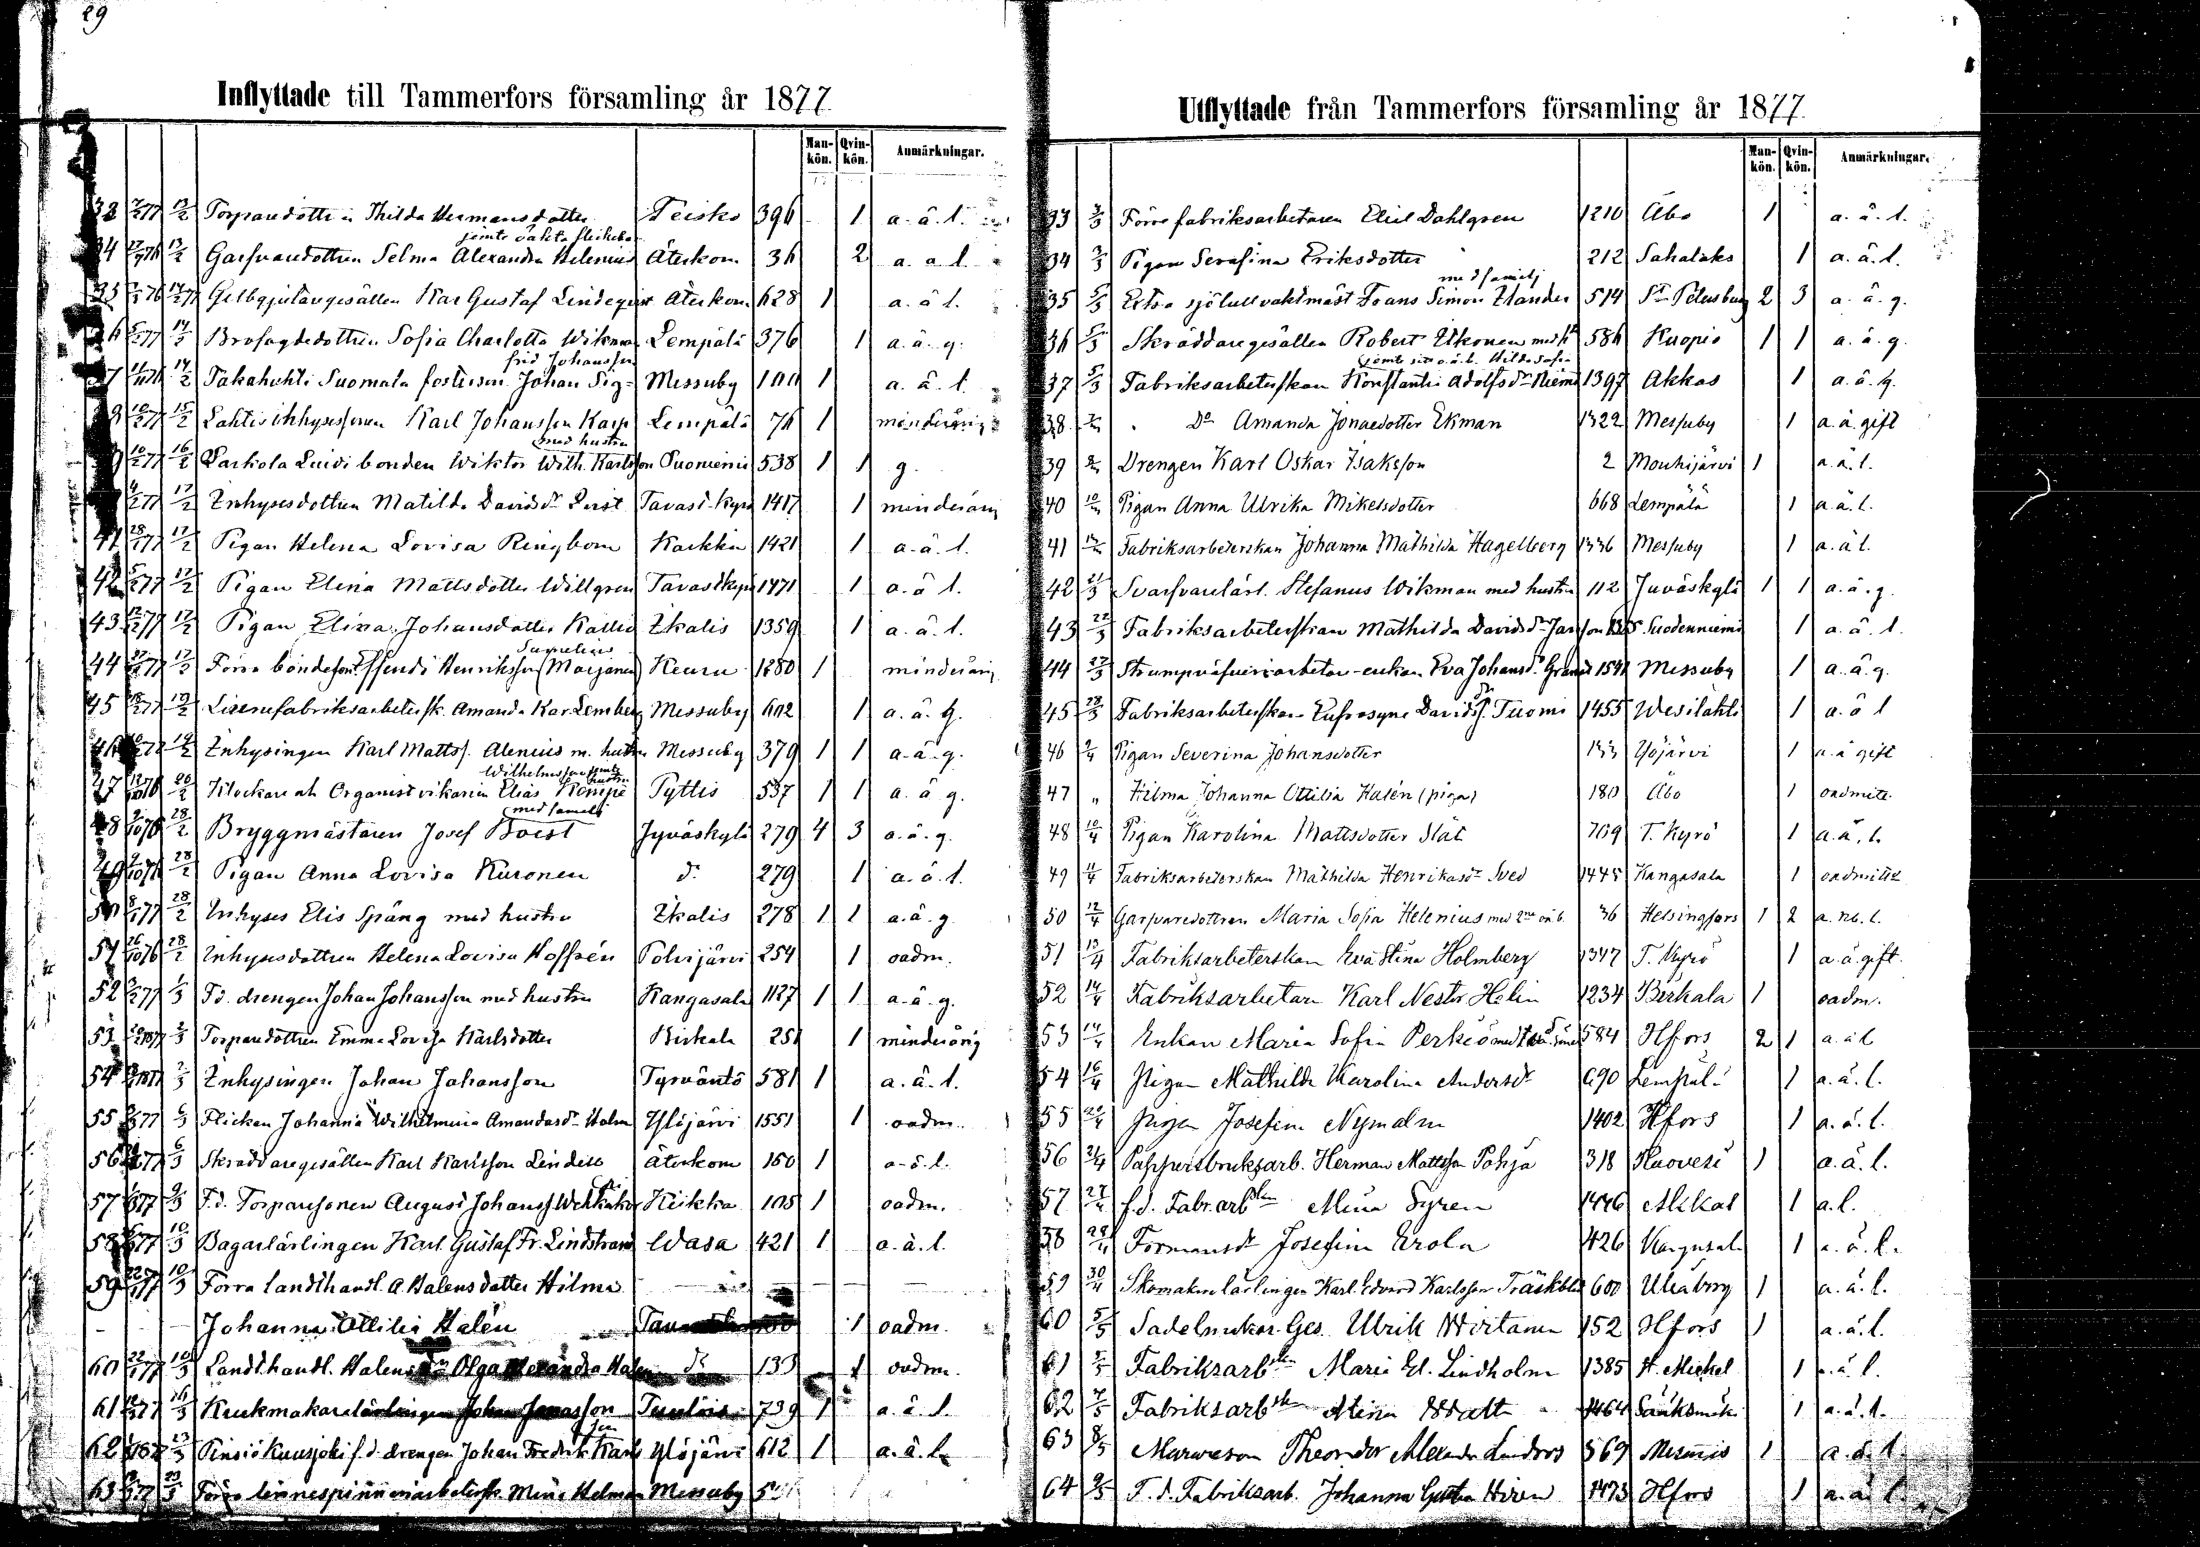 29
Inflyttade till Tammerfors församling år 1877.
Mankön. Qvinkön. Anmärkningar.
33 Torparedottern Thilda Hermansdotter Teisko 396 1 a.ä.l.
34 Garfvaredottren Selma Alexandra Helenius Återkom 36 2 a.a.l.
35 Gelbgjutaregesällen Kar Gustaf Lindeqvist Återkom 628 1 a.ä.l.
36 Brofogdedottren Sofia Charlotta Wikman Lempälä 376 1 a.ä.g.
frid Johansson
37 Takahuhti Suomala fosterson Johan Sig- Messuby 1 a.ä.l.
38 Lahtis inhysessonen Karl Johansson Karp Lempälä 76 1 minderårig
med hustru
39 bonden Wiktor Wilh. Karlsson Suoniemi 538 1 1 g.
40 Inhysesdottren Matilda Davidsdr Qvist Tavast-Kyro 1417 1 minderårig
41 Pigan Helena Lovisa Ringbom Karkku 1421 1 a.ä.l.
42 Pigan Elina Mattsdotter Willgren Tavastkyro 1471 1 a.ä.l.
43 Pigan Elina Johansdotter Kallio Ikalis 1359 1 a.ä.l.
44 Förra bondeson Henriksson (Marjanen) Keuru 1280 1 minderårig
45 Linnefabriksarbetersk. Amanda Kar. Lemberg Messuby 602 1 a.ä.g.
46 Inhysingen Karl Mattss. Alenius m. hustru Messuby 379 1 1 a.ä.g.
Wilhelmsson jemte hustru
47 Klockare och Organist vikarien Elias Kömpe Pyttis 537 1 1 a.ä.g.
med familj
48 Bryggmästaren Josef Boist Jyväskylä 279 4 3 a.ä.g.
49 Pigan Anna Lovisa Kuronen do 279 1 a.ä.l.
50 Inhyses Elis Spång med hustru Ikalis 278 1 1 a.ä.g.
51 Inhysesdottren Helena Lovisa Hoffrén Polvijärvi 254 1 oadm.
52 Fd. drengen Johan Johansson med hustru Kangasala 1127 1 1 a.ä.g.
53 Torparedottren Emma Lovisa Karlsdotter Birkala 251 1 minderårig
54 Inhysingen Johan Johansson Tyrväntö 581 1 a.ä.l.
55 Flickan Johanna Wilhelmina Amandasdr Holm Ylöjärvi 1551 1 oadm.
56 Skräddaregesällen Karl Karlsson Lindell Återkom 160 1 a.ä.l.
57 F.d. Torparesonen August Johanss. Kiikka 105 1 oadm.
58 Bagarlärlingen Karl Gustaf Fr. Lindstrand Wasa 421 1 a.ä.l.
59 Förra landthandl. A. Halens dotter Hilma
Johanna Ottilia Halén 1 oadm.
60 Landthandl. Halens Olga Alexandra Halen do 133 1 oadm.
61 Krukmakarelärlingen Johan Jonasson Tuulois 739 1 a.ä.l.
62 Pinsiö Kuusjoki f.d. drengen Johan Fredrik Karlsson Ylöjärvi 612 1 a.ä.l.
63 Förra linnespinneriarbetersk. Mina Helman Messuby
Utflyttade från Tammerfors församling år 1877.
Mankön. Qvinkön. Anmärkningar.
33 3/3 Förre fabriksarbetaren Eliel Dahlgren 1210 Åbo 1 a.ä.l.
34 3/3 Pigan Serafina Eriksdotter 212 Sahalaks 1 a.ä.l.
med familj
35 5/3 Extra sjötullvaktmäst Frans Simon Elander 514 St Petersburg 2 3 a.ä.g.
36 5/3 Skräddaregesällen Robert Itkonen med h 586 Kuopio 1 1 a.ä.g.
jemte sitt o.ä.b. Hilda Sofia
37 5/3 Fabriksarbeterskan Konstantia Adolfsdr Niemi 1397 Akkas 1 a.ä.g.
38 Do Amanda Jonaedotter Ekman 1322 Messuby 1 a.ä.gift
39 Drengen Karl Oskar Isaksson 2 Mouhijärvi 1 a.ä.l.
40 Pigan Anna Ulrika Mikelsdotter 668 Lempälä 1 a.ä.l.
41 Fabriksarbeterskan Johanna Mathilda Hagelberg 1336 Messuby 1 a.ä.l.
42 21/3 Svarfvarelärl. Stefanus Wikman med hustru 112 Juväskylä 1 1 a.ä.g.
43 22/3 Fabriksarbeterskan Mathilda Davidsdr Suodenniemi 1 a.ä.l.
44 27/3 Strumpväfveriarbetar-enkan Eva Johansdr 1541 Messuby 1 a.ä.g.
45 28/3 Fabriksarbeterskan Eufrosyne Davidsdr Tuomi 1455 Wesilahti 1 a.ä.l
46 9/4 Pigan Severina Johansdotter 133 Ylöjärvi 1 a.ä gift
47 " Hilma Johanna Ottilia Halén (piga) 180 Åbo 1 oadmitt.
48 10/4 Pigan Karolina Mattsdotter Slät 709 T. Kyrö 1 a.ä.l.
49 11/4 Fabriksarbeterskan Mathilda Henriksdr Sved 1445 Kangasala 1 oadmitt
50 12/4 Garfvaredottren Maria Sofia Helenius med 2ne oä.b. 36 Helsingfors 1 2 a.nb.l.
51 13/4 Fabriksarbeterskan Eva Stina Holmberg 1347 T. Kyrö 1 a.ä.gift.
52 14/4 Fabriksarbetaren Karl Nestor Helin 1234 Birkala 1 oadm.
53 14/4 Enkan Maria Sofia Perkiö med två söner 584 Hfors 2 1 a.ä.l
54 16/4 Pigan Mathilda Karolina Andersdr 690 Lempälä 1 a.ä.l.
55 Pigan Josefina Nymalm 1402 Hfors 1 a.ä.l.
56 Pappersbruksarb. Herman Mattsson Pohja 318 Ruovesi 1 a.ä.l.
57 27/4 f.d. Fabr.arbskan Mina Syren 1446 Akkas 1 a.l.
58 28/4 Formansdr Josefina Erola 426 Kangasala 1 a.ä.l.
59 30/4 Skomakarelärlingen Karl Edvard Karlsson 600 Uleåborg 1 a.ä.l.
60 5/5 Sadelmakar. Ges. Ulrik Wirtanen 152 Hfors 1 a.ä.l.
61 Fabriksarbskan Maria Ed. Lindholm 1385 St. Michel 1 a.ä.l.
62 7/5 Fabriksarbskan Mina Watt 1464 Sääksmäki 1 a.ä.l.
63 8/5 Murareson Theodor Alexander Lindros 569 1 a.ä.l.
64 9/5 F.d. Fabriksarb. Johanna Gustava Hiren 1473 Hfors 1 a.ä.l.